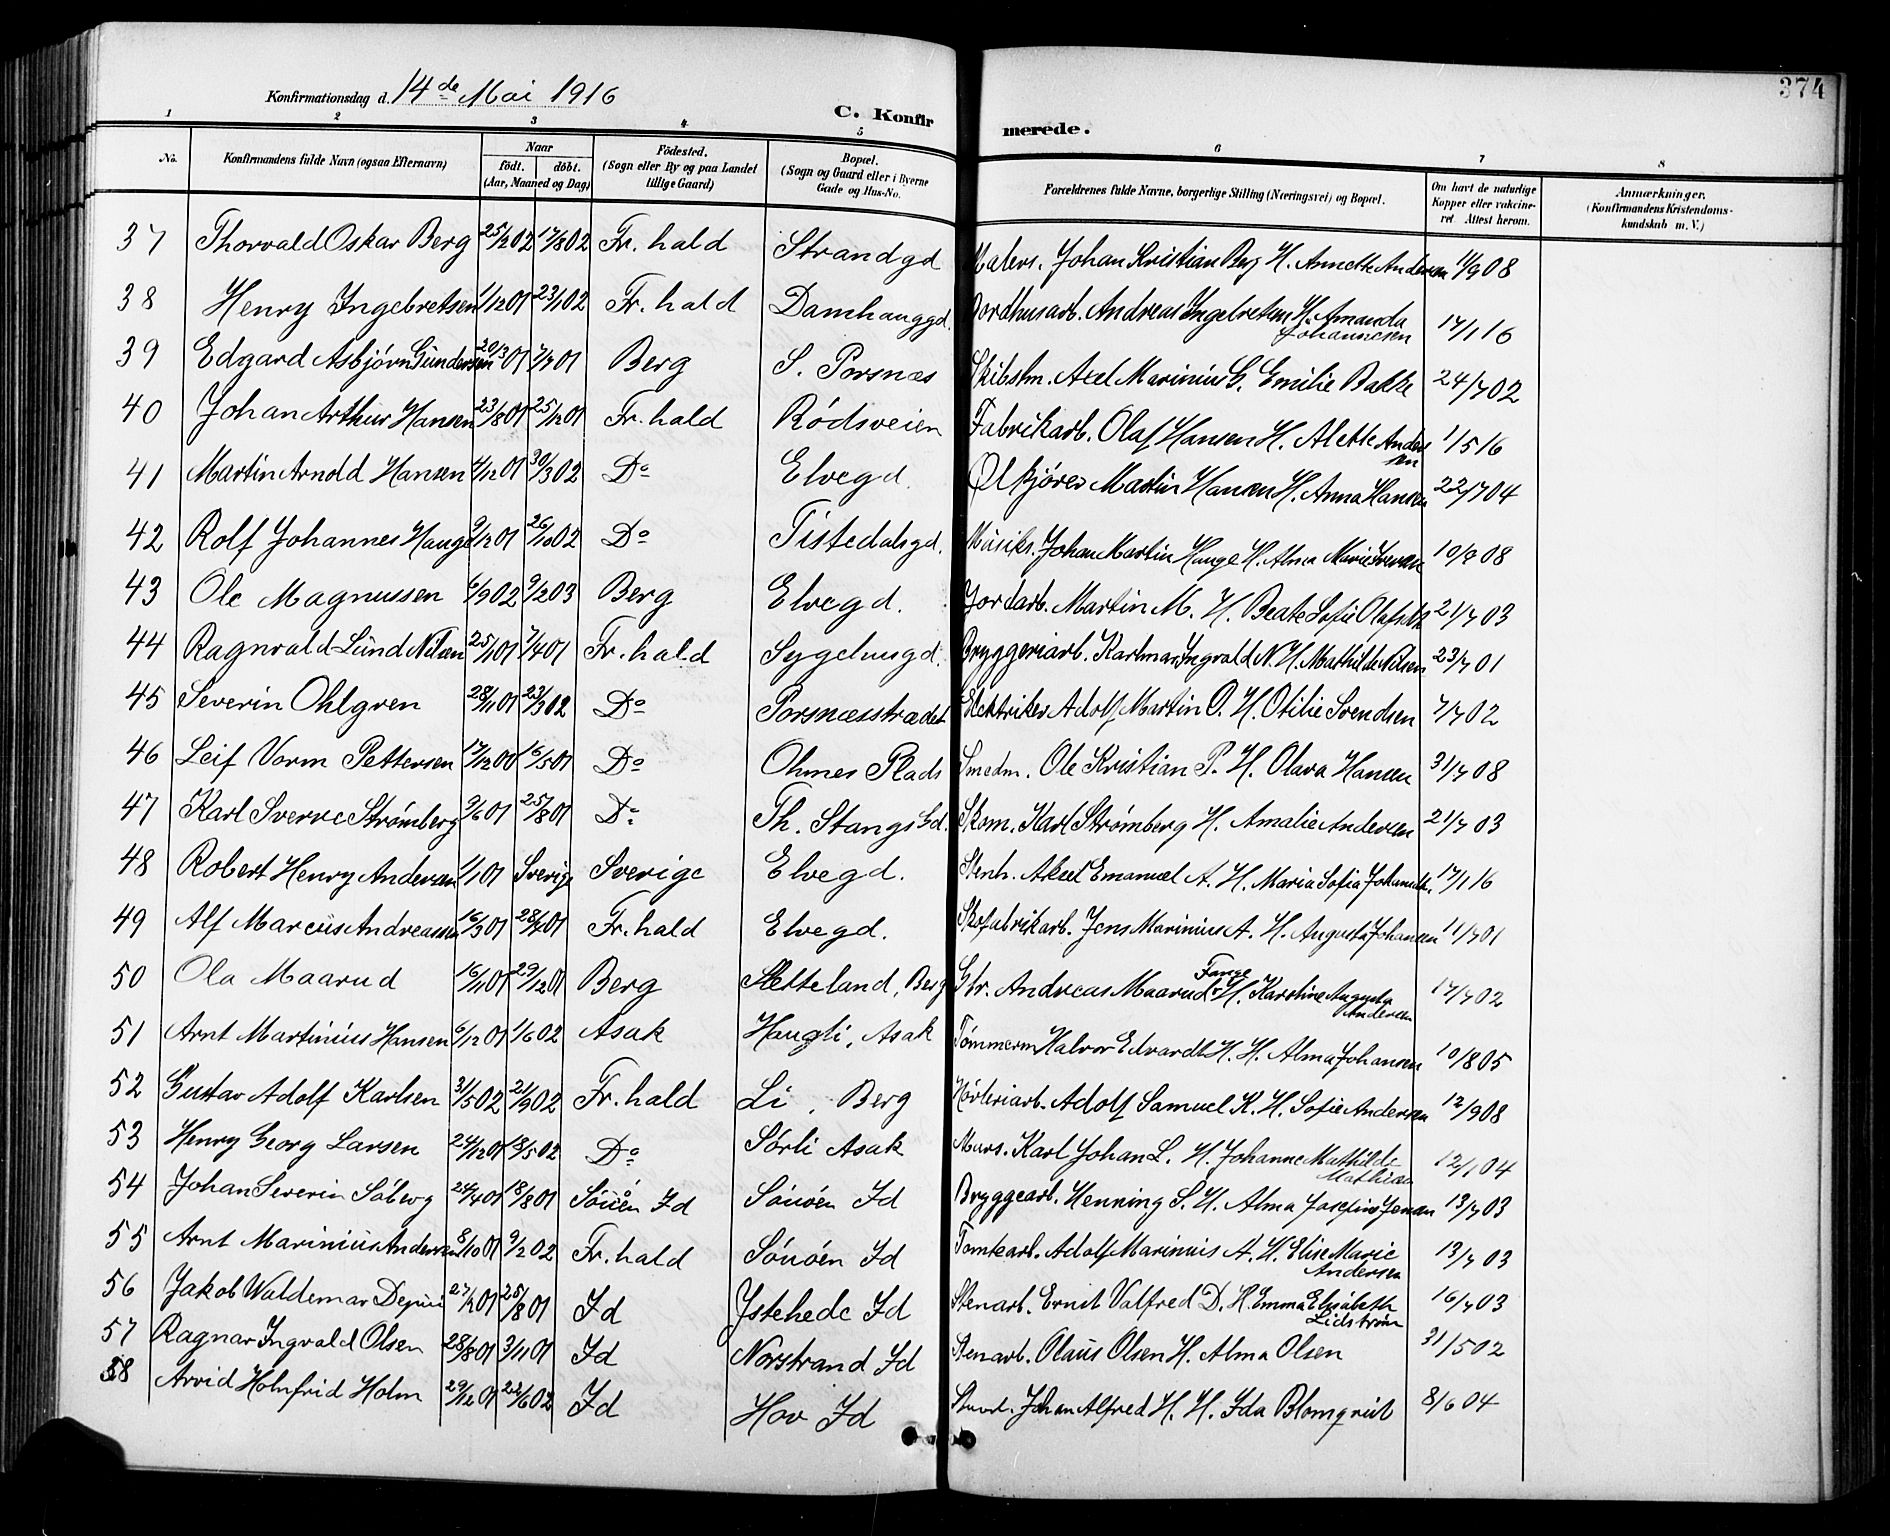 374
Konfirmationsdag d. 14de Mai 1916
C. Konfirmerede.
1 2 3 4 5 6 7 8
No. Konfirmandens fulde Navn (ogsaa Efternavn) Naar født. døbt. (Aar, Maaned og Dag) Födested. (Sogn eller By og paa Landet tillige Gaard) Bopæl. (Sogn og Gaard eller i Byerne Gade og Hus-No. Forældrenes fulde Navne, borgerlige Stilling (Næringsvei) og Bopæl. Om havt de naturlige Kopper eller vakcineret. Attest herom. Anmærkninger. (Konfirmandens Kristendomskundskab m. V.)
37 Thorvald Oskar Berg 25/2 02 17/8 02 Fr. hald Strandgd Malers. Johan Kristian Berg H. Annette Andersen 11/9 08
38 Henry Ingebretsen 1/12 01 23/1 02 Fr. hald Damhauggd. Andreas Ingebretsen H. Amanda Johannesen 17/1 16
39 Edgard Asbjørn Gundersen 20/3 01 7/7 01 Berg S. Porsnæs Skibstm. Axel Marinius G. Emilie Bakke 24/7 02
40 Johan Arthur Hansen 23/8 01 25/12 01 Fr. hald Rødsveien Fabrikarb. Olaf Hansen H. Alette Andersen 1/5 16
41 Martin Arnold Hansen 4/12 01 30/3 02 Do Elvegd. Ølkjører Martin Hansen H. Anna Hansen 22/7 04
42 Rolf Johannes Hauge 9/12 01 26/10 02 Do Tistedalsgd. Musiks. Johan Martin Hauge H. Alma Marie 10/9 08
43 Ole Magnussen 6/9 02 9/2 03 Berg Elvegd. Jordarb. Martin M. H. Beate Sofie 21/7 03
44 Ragnvald Lund Nilsen 25/1 01 7/4 01 Fr. hald Sygehusgd. Bryggeriarb. Karlmar Ingvald N. H. Mathilde Nilsen 23/7 01
45 Severin Ohlgren 28/11 01 23/3 02 Do Porsnæsstrædet Elektriker Adolf Martin O. H. Otilie Svendsen 7/7 02
46 Leif Vorm Pettersen 17/12 00 16/5 01 Do Ohmes Plads Smedm. Ole Kristian P. H. Olava Hansen 31/7 08
47 Karl Sverre Strømberg 9/6 01 25/8 01 Do Th. Stangs Gd. Skom. Karl Strømberg H. Amalie Andersen 21/7 03
48 Robert Henry Andersen 1/1 01 Sverige Sverige Elvegd. Stenh. Aksel Emanuel A. H. Maria Sofia 17/1 16
49 Alf Marcus Andreassen 16/3 01 28/4 01 Fr. hald Elvegd. Skofabrikarb. Jens Marinius A. H. Augusta Johansen 11/7 01
50 Ola Maarud 16/11 01 29/12 01 Berg Sletteland, Berg Gbr. Andreas Maarud Fange H. Karoline Augusta Andersen 17/7 02
51 Arnt Martinius Hansen 6/12 01 1/6 02 Asak Haugli, Asak Tømmerm Halvor Edvardt H. H. Alma Johansen 10/8 05
52 Gustav Adolf Karlsen 31/5 02 21/9 02 Fr. hald Li, Berg Høvleriarb. Adolf Samuel K. H. Sofie Andersen 12/9 08
53 Henry Georg Larsen 24/12 01 18/5 02 Do Sørli Asak Murs. Karl Johan L. H. Johanne Mathilde Mathisen 12/1 04
54 Johan Severin Søberg 24/4 01 18/8 01 Id Id Bryggearb. Henning S. H. Alma Josefine Jensen 13/7 03
55 Arnt Marinius Andersen 8/10 01 9/2 02 Fr. hald Id Tomtearb. Adolf Marinius A. H. Elise Marie Andersen 13/7 03
56 Jakob Waldemar 27/1 01 25/8 01 Id Ystehede Id Stenarb. Ernst Valfred D. H. Emma Elisabeth Lidstrøm 16/7 03
57 Ragnar Ingvald Olsen 28/8 01 3/11 01 Id Norstrand Id Stenarb. Olaus Olsen H. Alma Olsen 31/5 02
58 Arvid Holmfrid Holm 29/12 01 22/6 02 Id Hov Id Johan Alfred H. H. Ida Blomqvist 8/6 04